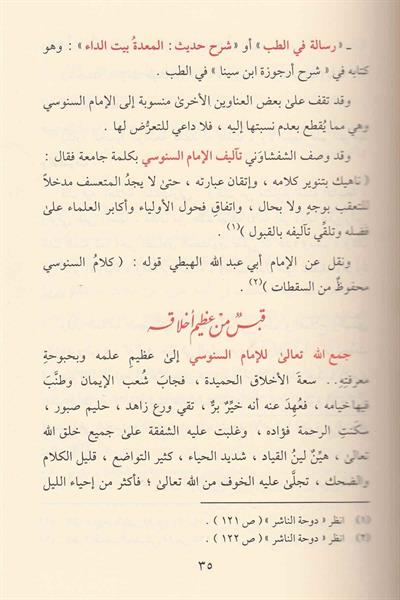 ـ « رسالة في الطب » أو « شرح حديث : المعدةُ بيت الداء » : وهو
كتابه في « شرح أرجوزة ابن سينا » في الطب .
وقد تقف علىٰ بعض العناوين الأخرىٰ منسوبة إلى الإمام السنوسي
وهي مما يُقطع بعدم نسبتها إليه ، فلا داعي للتعرُّض لها .
وقد وصف الشفشاوني تآليف الإمام السنوسي بكلمة جامعة فقال :
( ناهيك بتنوير كلامه ، وإتقان عبارته ، حتىٰ لا يجدُ المتعسف مدخلاً
للتعقب بوجهٍ ولا بحال ، واتفاقِ فحول الأولياء وأكابر العلماء علىٰ
فضله وتلقِّي تآليفه بالقبول )(١) .
ونقل عن الإمام أبي عبد الله الهبطي قوله : ( كلامُ السنوسي
محفوظٌ من السقطات )(٢) .
قبسٌ من عظيم أخلاقه
جمع الله تعالىٰ للإمام السنوسي إلىٰ عظيم علمه وبحبوحةِ
معرفتهِ . . سعةَ الأخلاق الحميدة ، فجابَ شُعب الإيمان وطنَّب
فيها خيامه ، فعُهِدَ عنه أنه خيِّرٌ برٌّ ، تقي ورع زاهد ، حليم صبور ،
سكنتِ الرحمة فؤاده ، وغلبت عليه الشفقة علىٰ جميع خلق الله
تعالىٰ ، هيِّنٌ لينُ القياد ، شديد الحياء ، كثير التواضع ، قليل الكلام
والضحك ، تجلَّىٰ عليه الخوف من الله تعالىٰ ؛ فأكثر من إحياء الليل
(١) انظر « دوحة الناشر » ( ص ١٢١ ) .
(٢) انظر « دوحة الناشر » ( ص ١٢٢ ) .
٣٥